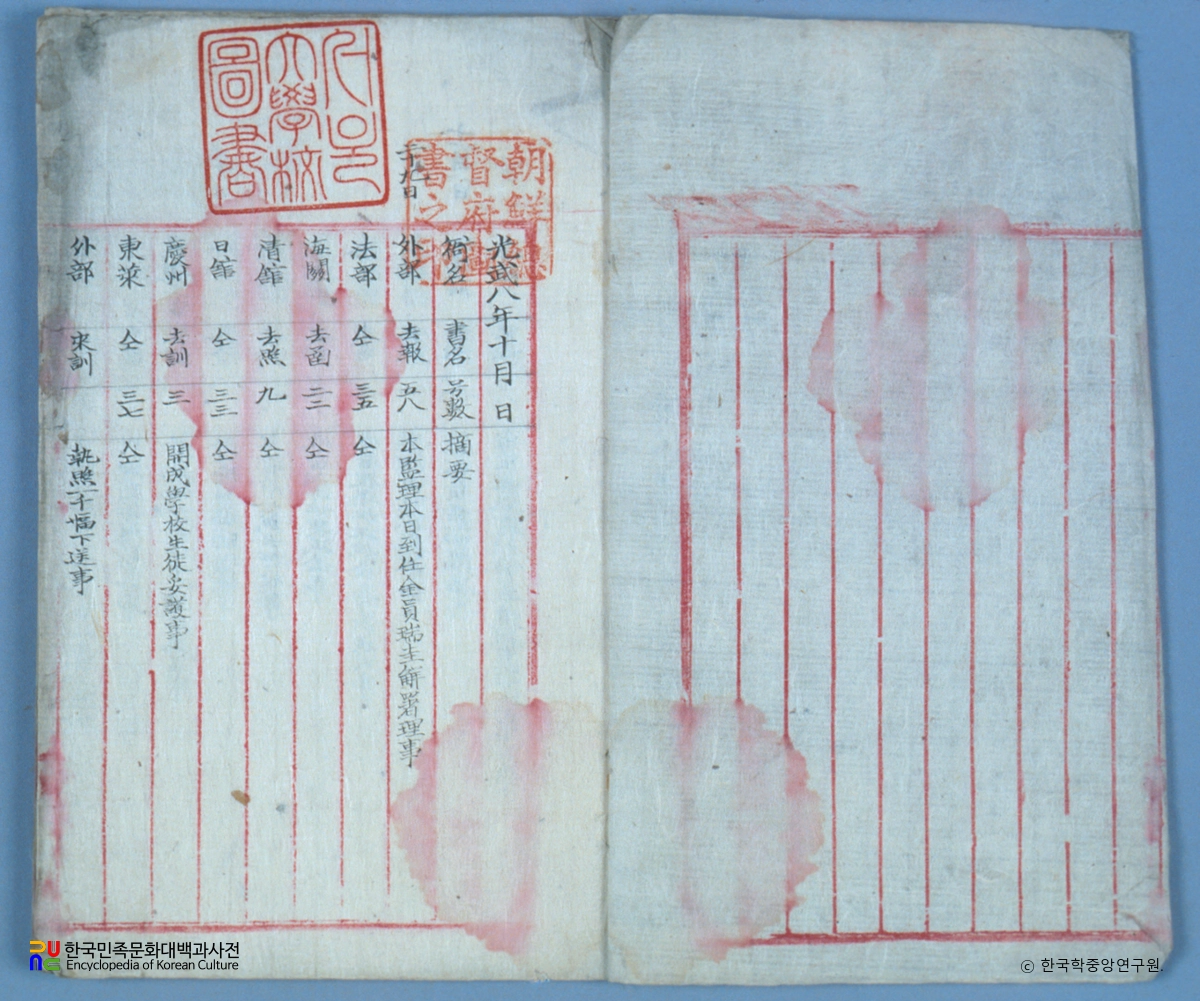 서울大學校圖書
朝鮮總督府圖書之印
光武八年十月 日
二十九日
衙名 書名 号數 摘要
外部 去報 五八 本監理本日到任金員瑞圭解署理事
法部 仝 三五 仝
海關 去函 二二 仝
清館 去照 九 仝
日館 仝 三三 仝
慶州 去訓 三 開成學校生徒妥護事
東萊 仝 三七 仝
外部 來訓 執照一千幅下送事
한국민족문화대백과사전
Encyclopedia of Korean Culture
© 한국학중앙연구원.